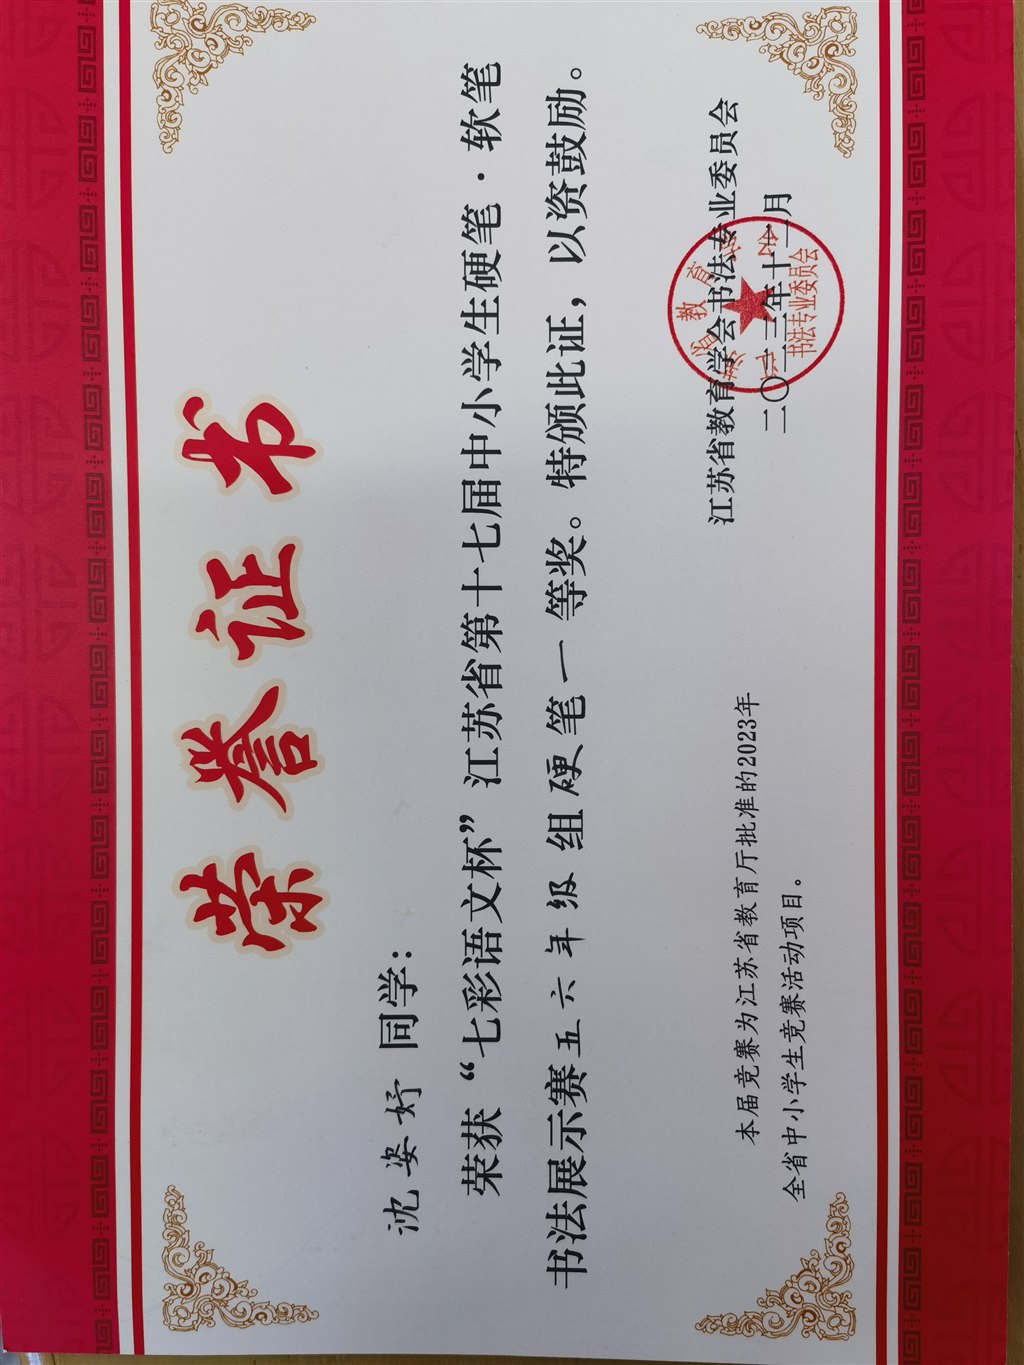 荣誉证书
沈姿妤 同学：
荣获“七彩语文杯”江苏省第十七届中小学生硬笔·软笔
书法展示赛五六年级组硬笔一等奖。特颁此证，以资鼓励。
本届竞赛为江苏省教育厅批准的2023年
全省中小学生竞赛活动项目。
江苏省教育学会书法专业委员会
二〇二三年十二月
江苏省教育学会
书法专业委员会